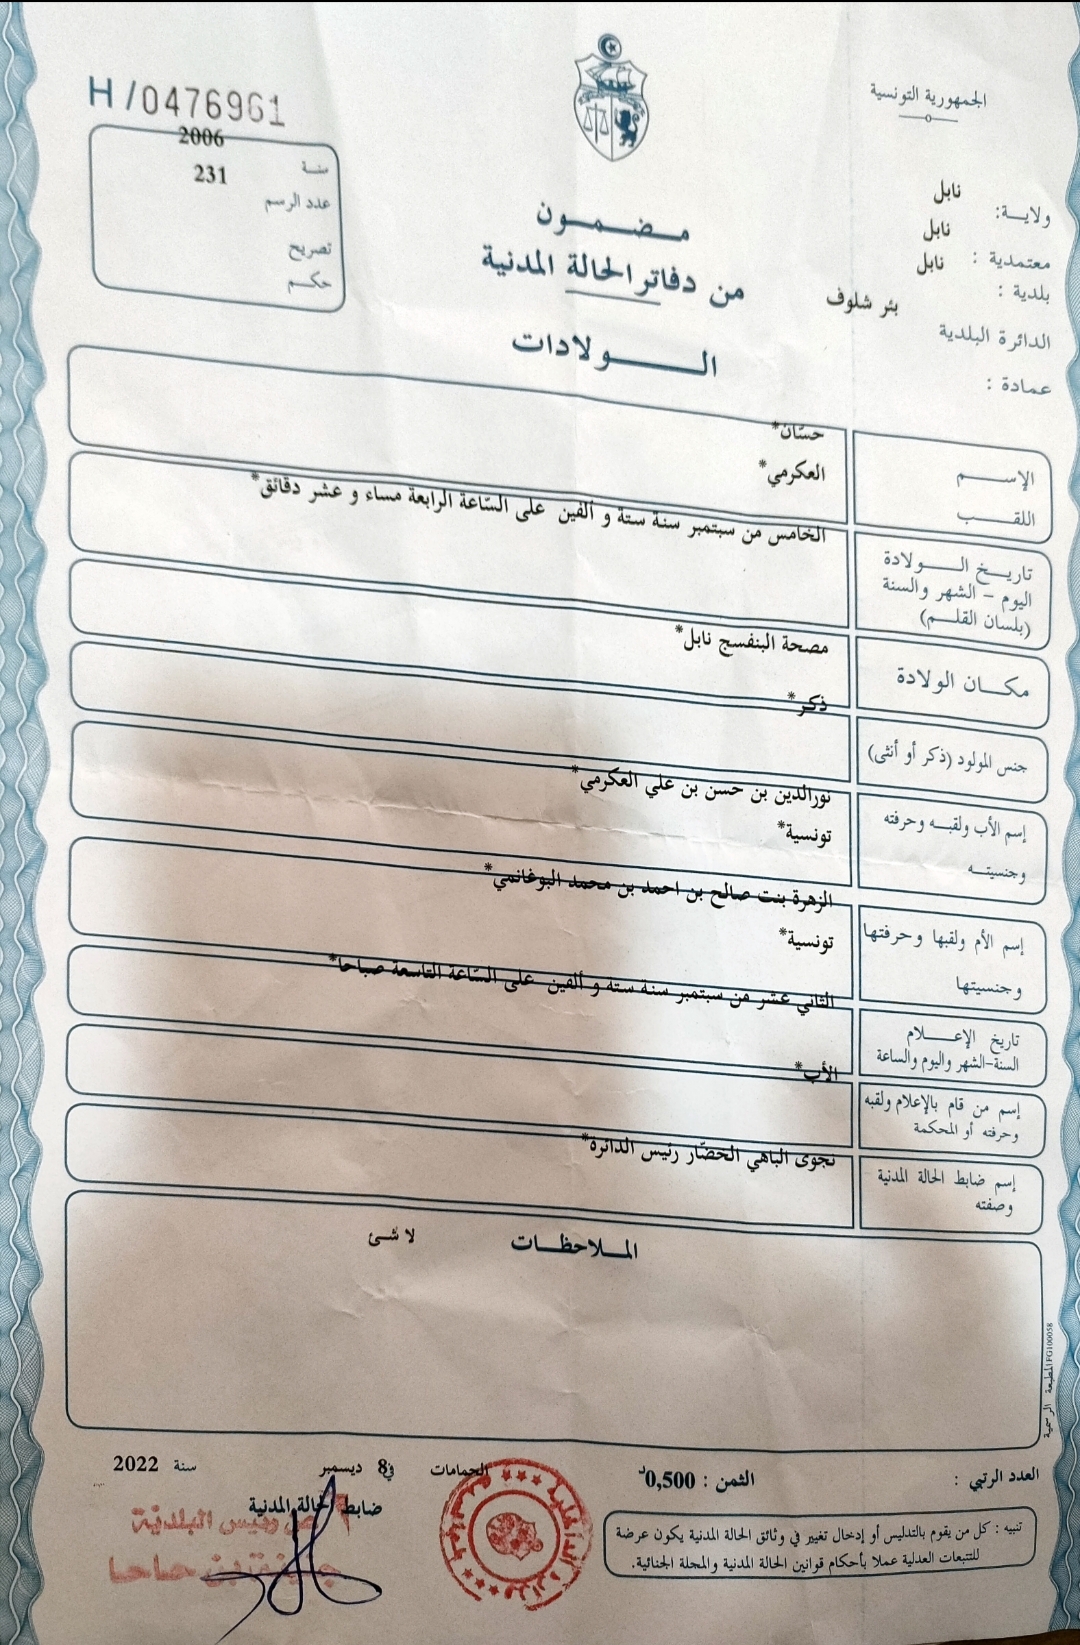 الجمهورية التونسية
H/0476961
2006
سنة
231
عدد الرسم
تصريح
حكم
ولاية: نابل
معتمدية : نابل
بلدية : نابل
الدائرة البلدية بئر شلوف
عمادة :
مضمون
من دفاتر الحالة المدنية
الولادات
الإسم حسّان*
اللقب العكرمي*
تاريخ الولادة
اليوم - الشهر والسنة
(بلسان القلم)
الخامس من سبتمبر سنة ستة و ألفين على السّاعة الرابعة مساء و عشر دقائق*
مكان الولادة مصحة البنفسج نابل*
جنس المولود (ذكر أو أنثى) ذكر*
إسم الأب ولقبه وحرفته نورالدين بن حسن بن علي العكرمي*
وجنسيته تونسية*
إسم الأم ولقبها وحرفتها الزهرة بنت صالح بن احمد بن محمد البوغانمي*
وجنسيتها تونسية*
تاريخ الإعلام
السنة-الشهر واليوم والساعة
الثاني عشر من سبتمبر سنة ستة و ألفين على السّاعة التاسعة صباحا*
إسم من قام بالإعلام ولقبه
وحرفته أو المحكمة
الأب*
إسم ضابط الحالة المدنية
وصفته
نجوى الباهي الحضّار رئيس الدائرة*
الملاحظات لا شئ
المطبعة الرسمية IFG100058
العدد الرتبي :
الثمن : 0,500د
الحمامات في 8 ديسمبر سنة 2022
ضابط الحالة المدنية
تنبيه : كل من يقوم بالتدليس أو إدخال تغيير في وثائق الحالة المدنية يكون عرضة
للتتبعات العدلية عملا بأحكام قوانين الحالة المدنية والمجلة الجنائية.
رئيس البلدية